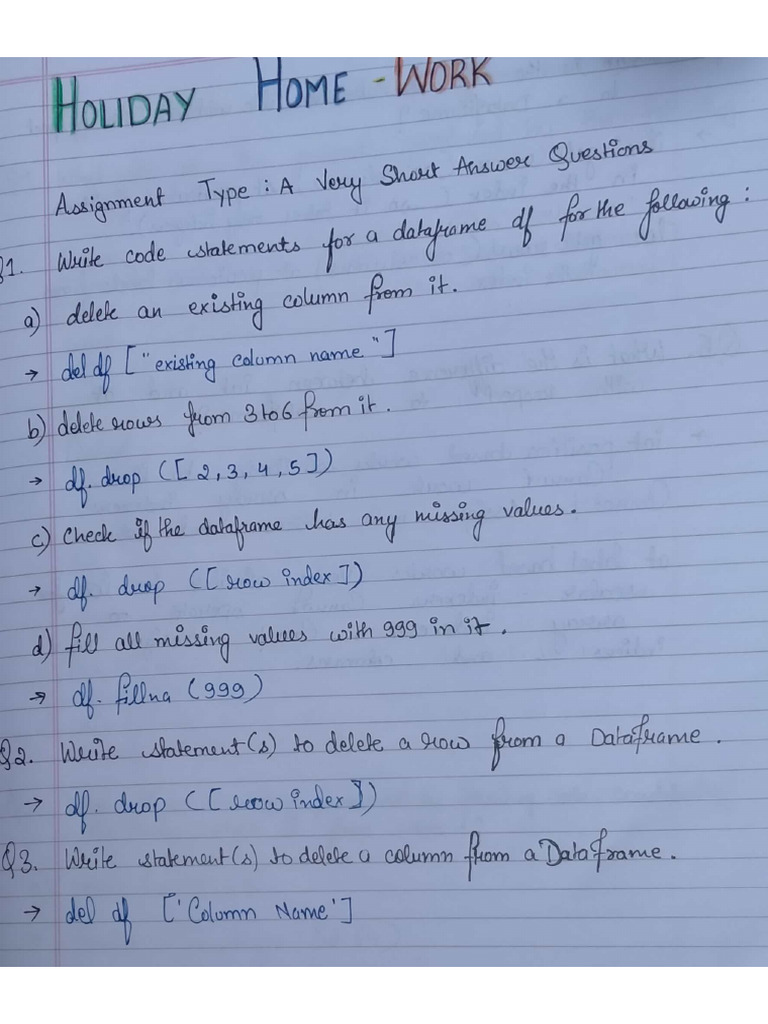 HOLIDAY HOME - WORK
Assignment Type : A Very Short Answer Questions
Q1. Write code statements for a dataframe df for the following :
a) delete an existing column from it.
→ del df ["existing column name"]
b) delete rows from 3 to 6 from it.
→ df. drop ([2, 3, 4, 5])
c) Check if the dataframe has any missing values.
→ df. drop ([row index])
d) fill all missing values with 999 in it.
→ df. fillna (999)
Q2. Write statement(s) to delete a row from a DataFrame.
→ df. drop ([row index])
Q3. Write statement(s) to delete a column from a DataFrame.
→ del df ['Column Name']